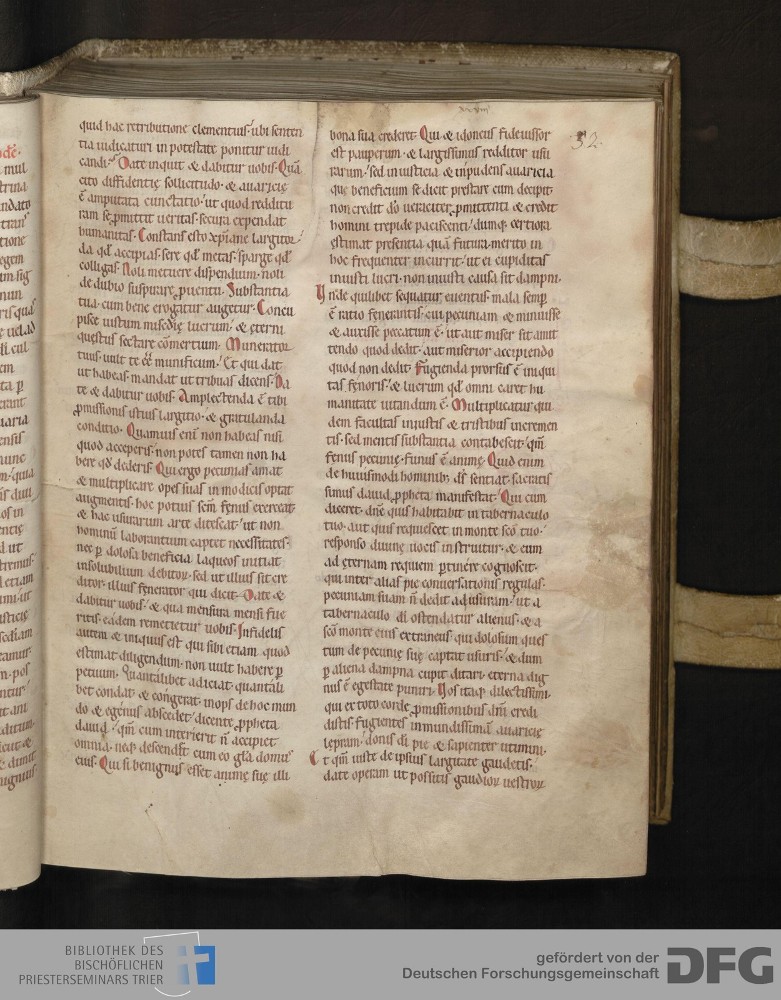 quid hac retributione clementius· ubi senten
tia iudicaturi in potestate ponitur iudi
candi· Date inquit & dabitur uobis· Quā
cito diffidentię sollicitudo· & auaricię
ē amputata cunctatio· ut quod redditu
ram se ꝓmittit ueritas· secura expendat
humanitas· Constans esto xp̄iane largitor
da qđ accipias· sere qđ metas· sparge qđ
colligas· Noli metuere dispendium· noli
de dubio suspirare ꝓuentu· Substantia
tua· cum bene erogatur augetur· Concu
pisce iustum misc̄dię lucrum· & ęterni
questus sectare cōmertium· Munerator
tuus uult te ēē munificum· Et qui dat
ut habeas· mandat ut tribuas dicens· Da
te & dabitur uobis· Amplectenda ē tibi
ꝓmissionis istius largitio· & gratulanda
conditio· Quamuis eni non habeas nisi
quod acceperis· non potes tamen non ha
bere qđ dederis· Qui ergo pecunias amat
& multiplicare opes suas inmodicis optat
augmentis· hoc potius scm̄ fęnus exerceat·
& hac usurarum arte ditescat· ut non
hominū laborantium captet necessitates·
nec ꝑ dolosa beneficia laqueos incurrat
insolubilium debitoꝝ· sed ut illius sit cre
ditor· illius fęnerator qui dicit· Date &
dabitur uobis· & qua mensura mensi fue
ritis· eadem remetietur uobis· Infidelis
autem & iniquus est qui sibi etiam quod
estimat diligendum· non uult habere ꝑ
petuum· Quantalibet adiciat· quantali
bet condat· & congerat· inops de hoc mun
do & egenus abscedet· dicente ꝓpheta
dauid· qm̄ cum interierit n̄ accipiet
omnia· neqꝫ descendit cum eo gl̄a domus
eius· Qui si benignus esset animę suę illi
xxviiii
52·
bona sua crederet· Qui & idoneus fideiussor
est pauperum· & largissimus redditor usu
rarum· sed iniusticia & inpudens auaricia
quę beneficium se dicit prestare cum decipit·
non credit dō ueraciter ꝓmittenti· & credit
homini trepide paciscenti· dumqꝫ certiora
ęstimat presentia quā futura· merito in
hoc frequenter incurrit· ut ei cupiditas
iniusti lucri· non iniusti causa sit dampni·
Unde quilibet sequatur euentus· mala semꝑ
ē ratio fenerantis· cui pecuniam & minuisse
& auxisse peccatum ē· ut aut miser sit amit
tendo quod dedit· aut miserior accipiendo
quod non dedit· Fugienda prorsus ē iniqui
tas fęnoris· & lucrum qđ omni caret hu
manitate uitandum ē· Multiplicatur qui
dem facultas iniustis & tristibus incremen
tis· sed mentis substantia contabescit· qm̄
fenus pecunię· funus ē animę· Quid enim
de huiusmodi hominibꝫ dr̄ sentiat· sacratis
simus dauid ꝓpheta manifestat· Qui cum
diceret· dn̄e quis habitabit in tabernaculo
tuo· aut quis requiescet in monte sc̄o tuo·
responso diuinę uocis instruitur· & eum
ad ęternam requiem ꝑtinere cognoscit·
qui inter alias pię conuersationis regulas·
pecuniam suam n̄ dedit ad usuram· ut a
tabernaculo dī ostendatur alienus· & a
sc̄o monte eius extraneus· qui dolosum ques
tum de pecunię suę captat usuris· & dum
ꝑ aliena dampna cupit ditari· eterna dig
nus ē egestate puniri· Uos itaqꝫ dilectissimi·
qui ex toto corde ꝓmissionibus dn̄i credi
distis· fugientes inmundissimā auaricię
lepram· donis dī pie & sapienter utimini·
Et qm̄ iuste de ipsius largitate gaudetis·
date operam ut possitis gaudioꝝ uestroꝝ
BIBLIOTHEK DES
BISCHÖFLICHEN
PRIESTERSEMINARS TRIER
gefördert von der
Deutschen Forschungsgemeinschaft
DFG